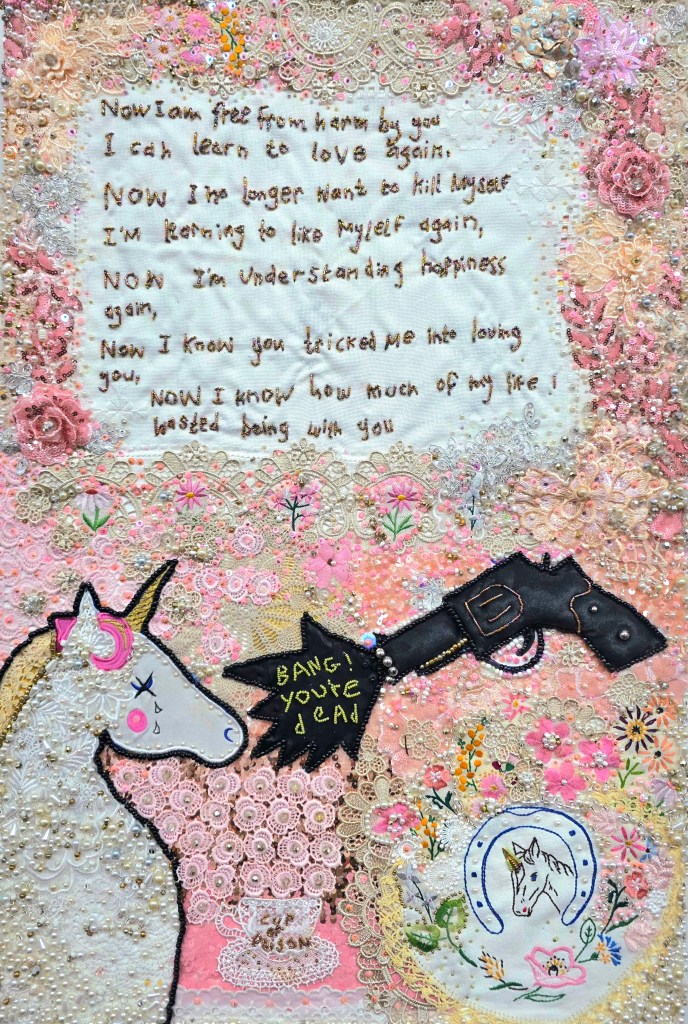 Now I am free from harm by you
I can learn to love again.
NOW I no longer want to kill Myself
I'm learning to like Myself again,
NOW I'm Understanding happiness
again,
Now I know you tricked Me into loving
you,
NOW I know how much of my life i
wasted being with you
BANG!
you're
dead
CUP
of
POISON